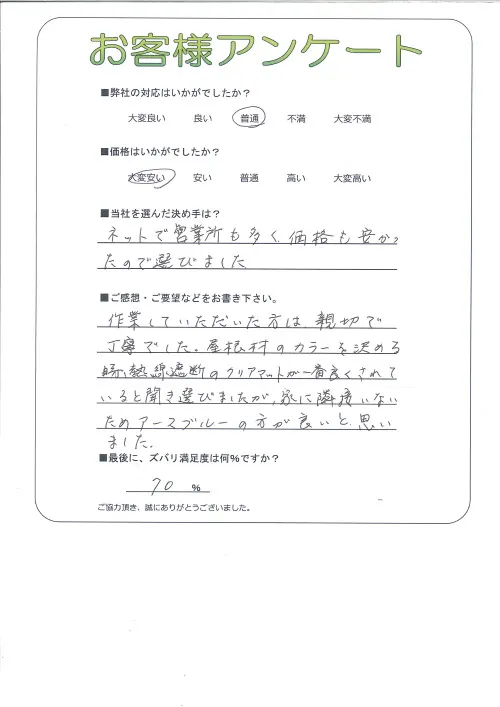 お客様アンケート
■弊社の対応はいかがでしたか？
大変良い 良い 普通 不満 大変不満
■価格はいかがでしたか？
大変安い 安い 普通 高い 大変高い
■当社を選んだ決め手は？
ネットで営業所も多く、価格も安かっ
たので選びました
■ご感想・ご要望などをお書き下さい。
作業していただいた方は親切で
丁寧でした。屋根材のカラーを決める
時、熱線遮断のクリアマットが一番良くされて
いると聞き選びましたが、家に隣接いない
ためアースブルーの方が良いと思い
ました。
■最後に、ズバリ満足度は何％ですか？
70 %
ご協力頂き、誠にありがとうございました。